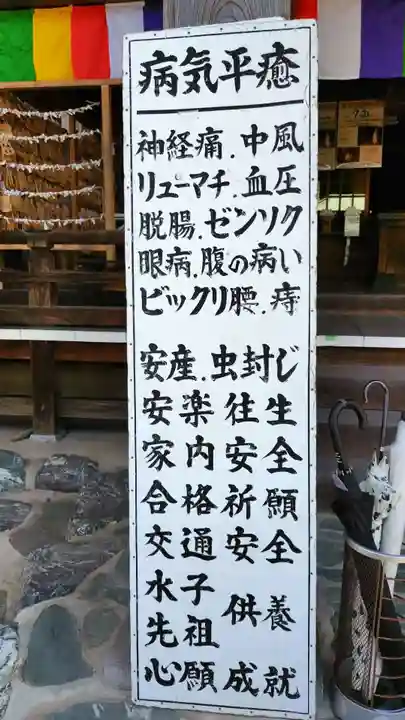 病気平癒
神経痛.中風
リューマチ.血圧
脱腸.ゼンソク
眼病.腹の病い
ビックリ腰.痔
安産.虫封じ
安楽往生
家内安全
合格祈願
交通安全
水子
先祖
供養
心願成就